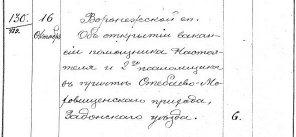 130. 16 Воронежской еп.
Октября Объ открытіи вакан-
сіи помощника Настоя-
теля и 2го псаломщика
въ приходѣ
прихода,
Задонскаго уѣзда. 6.